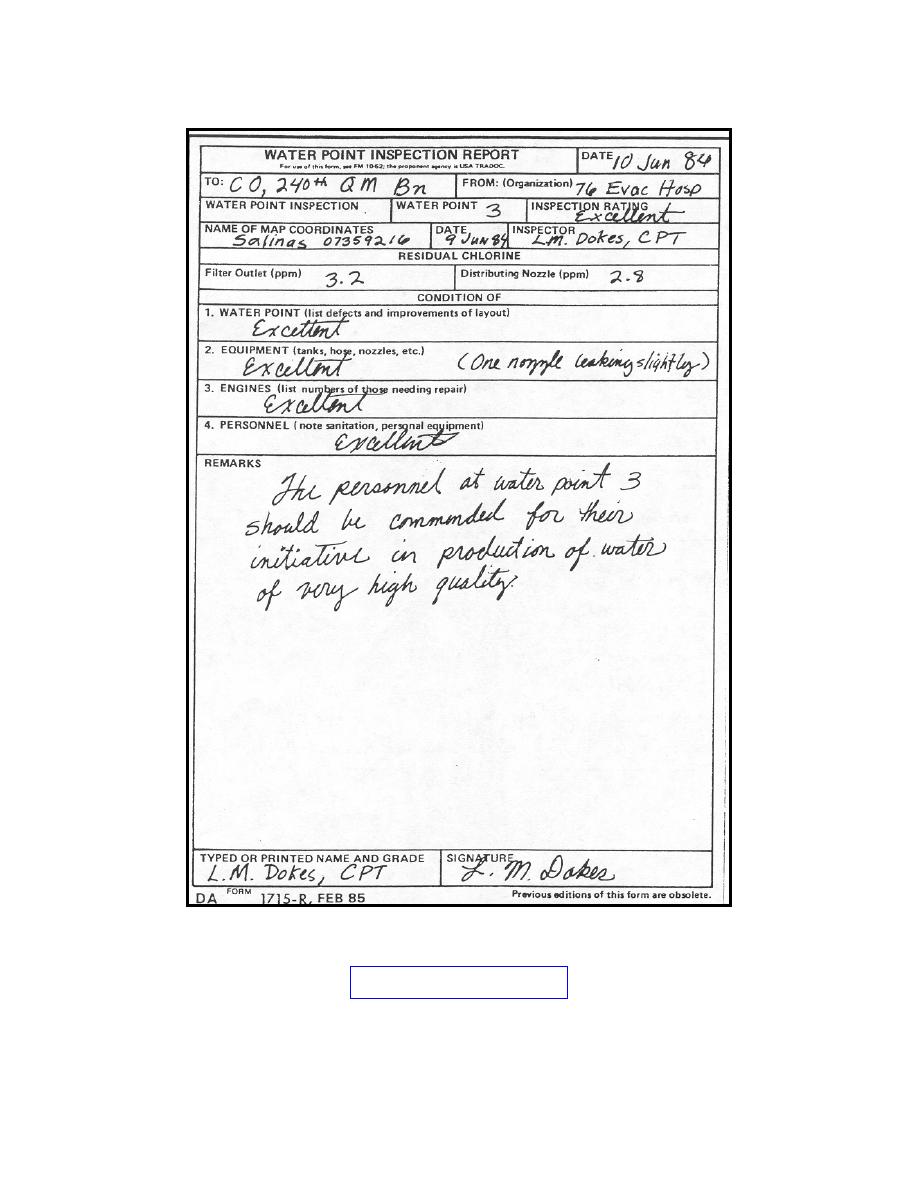 WATER POINT INSPECTION REPORT
For use of this form, see FM 10-52; the proponent agency is USA TRADOC.
DATE 10 Jun 84
TO: CO, 240th QM Bn
FROM: (Organization) 76 Evac Hosp
WATER POINT INSPECTION
WATER POINT 3
INSPECTION RATING Excellent
NAME OF MAP COORDINATES Salinas 07359216
DATE 9 JUN 84
INSPECTOR L.M. Dokes, CPT
RESIDUAL CHLORINE
Filter Outlet (ppm) 3.2
Distributing Nozzle (ppm) 2.8
CONDITION OF
1. WATER POINT (list defects and improvements of layout)
Excellent
2. EQUIPMENT (tanks, hose, nozzles, etc.)
Excellent (One nozzle leaking slightly)
3. ENGINES (list numbers of those needing repair)
Excellent
4. PERSONNEL (note sanitation, personal equipment)
Excellent
REMARKS
The personnel at water point 3
should be commended for their
initiative in production of water
of very high quality.
TYPED OR PRINTED NAME AND GRADE
L.M. Dokes, CPT
SIGNATURE
L. M. Dokes
DA FORM 1715-R, FEB 85
Previous editions of this form are obsolete.